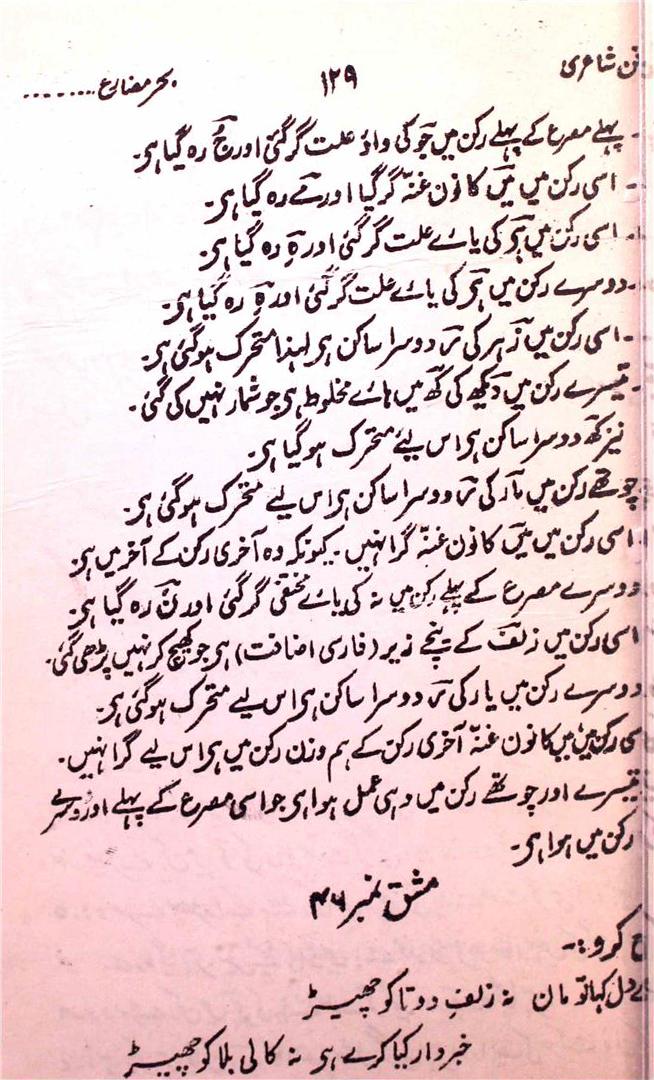 فن شاعری ۱۲۹ بحر مضارع........
۔ پہلے مصرع کے پہلے رکن میں جو کی واؤ علت گر گئی اور جُ رہ گیا ہی۔
۔ اسی رکن میں میں کا نون غنّہ گر گیا اور مے رہ گیا ہی۔
۔ اسی رکن میں ہی کی یائے علت گر گئی اور ہِ رہ گیا ہی۔
۔ دوسرے رکن میں ہی کی یائے علت گر گئی اور ہِ رہ گیا ہی۔
۔ اسی رکن میں زہر کی ر دوسرا ساکن ہی لہٰذا متحرک ہو گئی ہی۔
۔ تیسرے رکن میں دیکھ کی کھ میں ہائے مخلوط ہی جو شمار نہیں کی گئی۔
نیز کھ دوسرا ساکن ہی اس لیے متحرک ہو گیا ہی۔
چوتھے رکن میں مار کی ر دوسرا ساکن ہی اس لیے متحرک ہو گئی ہی۔
اسی رکن میں میں کا نون غنّہ گرا نہیں۔ کیونکہ وہ آخری رکن کے آخر میں ہی۔
دوسرے مصرع کے پہلے رکن میں نہ کی ہائے مختفی گر گئی اور نَ رہ گیا ہی۔
اسی رکن میں زلف کے نیچے زیر (فارسی اضافت) ہی جو کھینچ کر نہیں پڑھی گئی۔
دوسرے رکن میں یار کی ر دوسرا ساکن ہی اس لیے متحرک ہو گئی ہی۔
اسی رکن میں میں کا نون غنّہ آخری رکن کے ہم وزن رکن میں ہی اس لیے گرا نہیں۔
تیسرے اور چوتھے رکن میں وہی عمل ہوا ہی جو اسی مصرع کے پہلے اور دوسرے
رکن میں ہوا ہی۔
مشق نمبر ۴۶
ع کرو:۔
اے دل کہا تو مان نہ زلفِ دوتا کو چھیڑ
خبردار کیا کرے ہی نہ کالی بلا کو چھیڑ